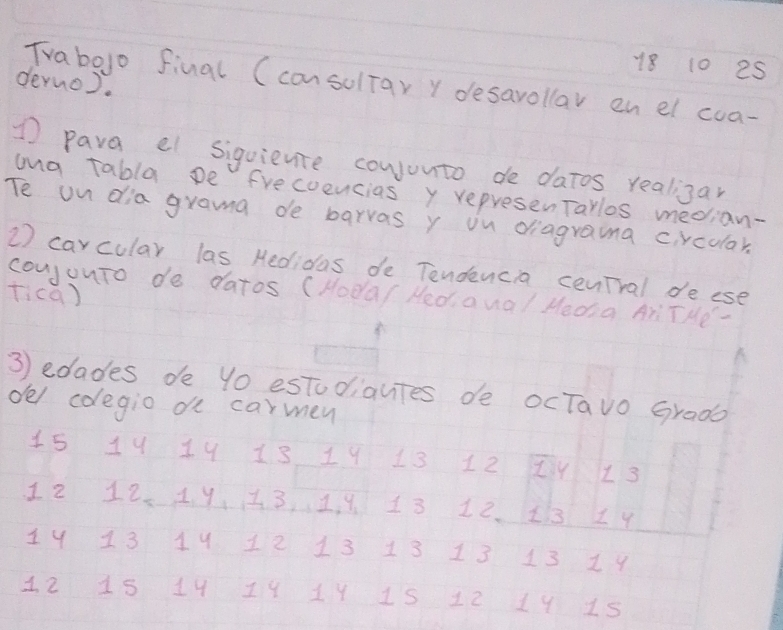 18 10 25
Trabajo final (consultar y desarollar en el cua-
derno).
1) para el siguiente conjunto de datos realizar
una tabla de frecuencias y representarlos median-
te un diagrama de barras y un diagrama circular.
2) carcular las Medidas de Tendencia central de ese
conjunto de datos (Moda/ Mediana/ Media AriTMé-
tica)
3) edades de 40 estudiantes de octavo Grado
del colegio de carmen
15 14 14 13 14 13 12 14 13
12 12 14 13 14 13 12 13 14
14 13 14 12 13 13 13 13 14
12 15 14 14 14 15 12 14 15